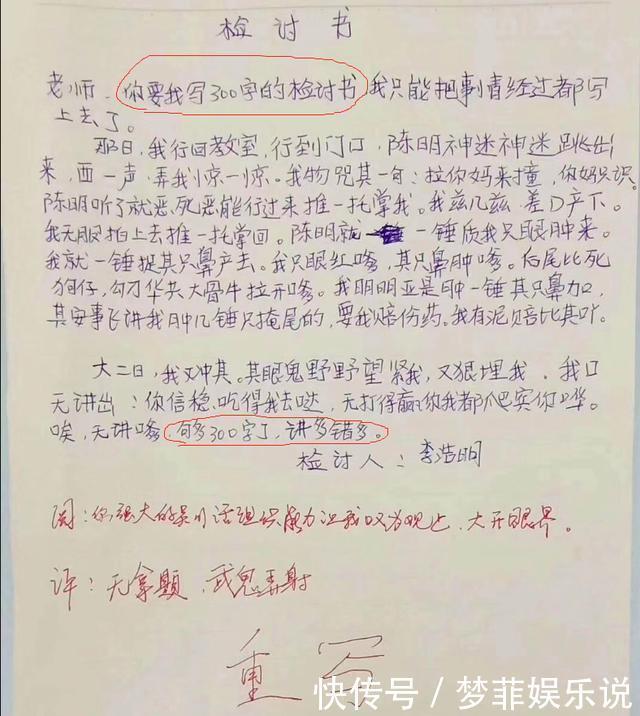 检讨书
老师、你要我写300字的检讨书 我只能把事情经过都写
上去了。
那日,我行回教室,行到门口,陈明神迷神迷跳出
来,西一声,弄我小惊一小惊。我物咒其一句:拉你妈来撞,你妈只识。
陈明听了就恶,死恶能行过来推一托掌我。我兹几兹,差D产下。
我无服扫上去推一托掌回。陈明就一锤质我只眼肿来。
我就一锤捉其只鼻产去。我只眼红嗲,其只鼻肿嗲。后尾比死
狗仔,勾才华共大骨牛拉开嗲。我明明亚是申一锤其只鼻加,
其安事飞讲我申几锤只掩尾的,要我赔伤药。我有泥贝赔比其吖。
大二日,我又冲其。其眼鬼野野望紧我,又狠埋我,我口
无讲出:你信稳吃得我去哒,无打得赢你我都巴宾你哗。
唉,无讲嗲,句多300字了,讲多错多。
检讨人:李浩明
阅:你强大的吴川话组织能力让我叹为观止、大开眼界。
评:无拿题,武鬼弄射
重写
快传号/梦菲娱乐说